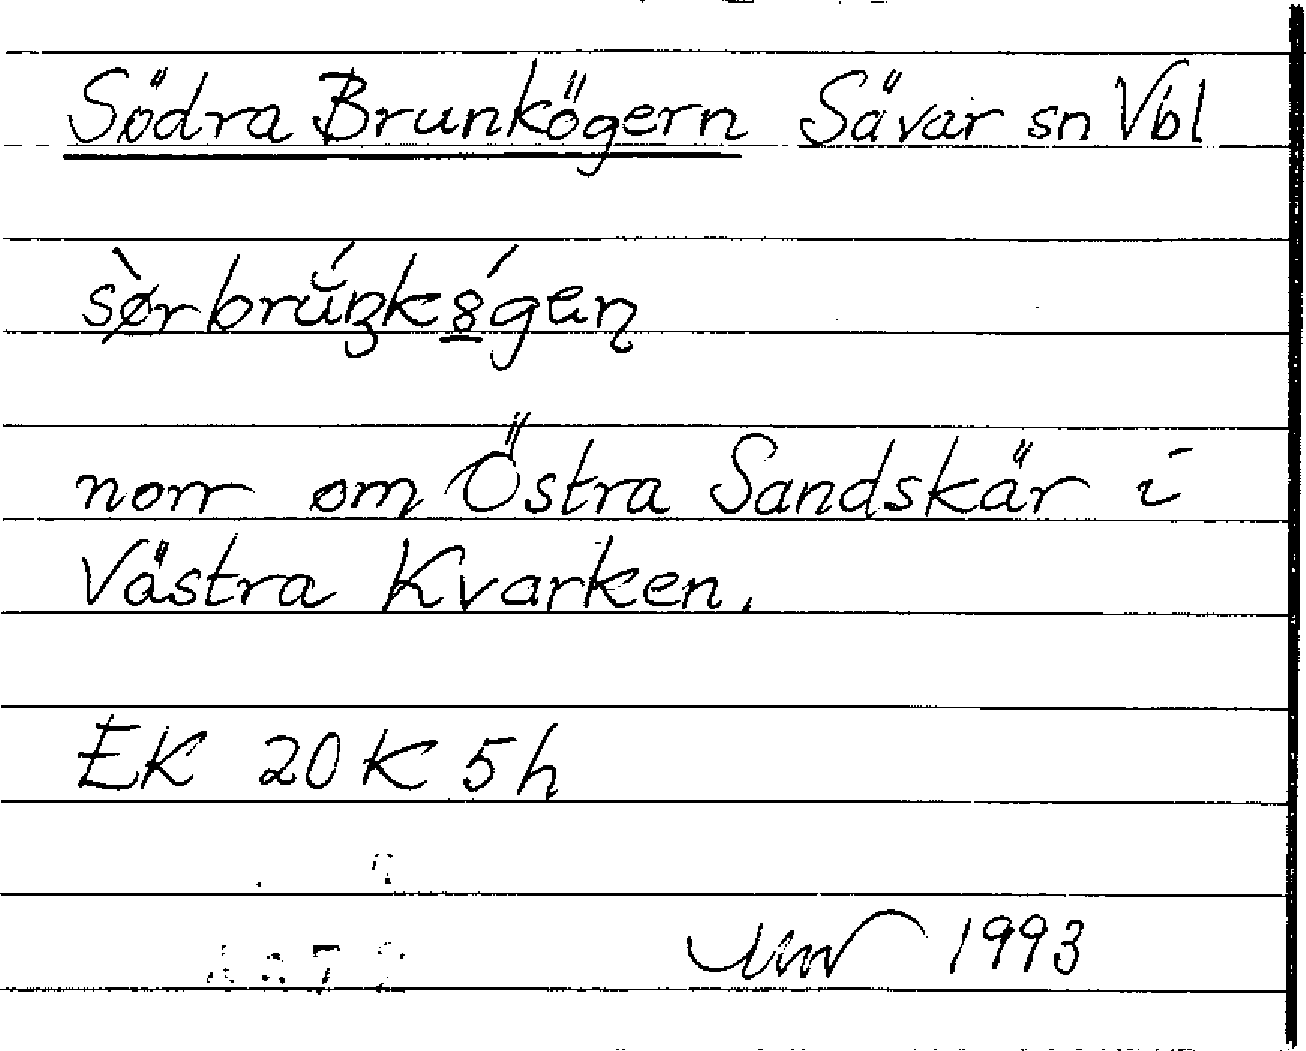 Södra Brunkögern Sävar sn Vbl
norr om Östra Sandskär i
Västra Kvarken.
EK 20K 5h
1993